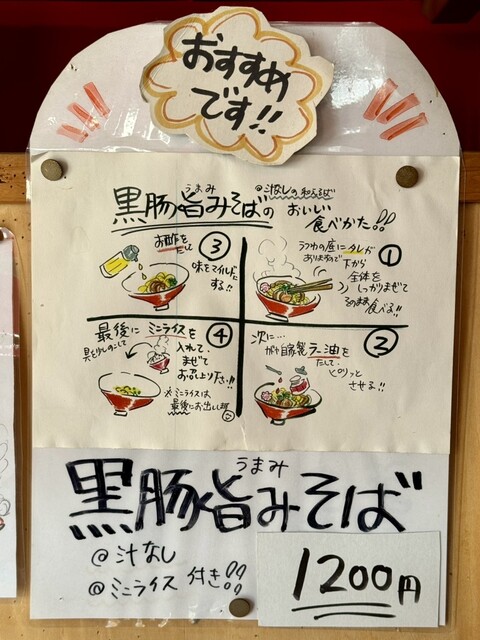 おすすめ
です!!
黒豚旨みそばの
うまみ
@汁なしの和えそば
おいしい
食べかた!!
①
うつわの底にタレが
ありますので下から
全体を
しっかりまぜて
そのまま食べる!!
②
次に…
自家製ラー油を
たして、
ピリッと
させる!!
③
お酢を
たし
味をマイルドに
する!!
④
最後にミニライスを
具を少しのこして
入れて、
まぜて
お召し上り下さい!!
※ミニライスは
最後にお出しします
うまみ
黒豚旨みそば
@汁なし
@ミニライス付き!!
1200円